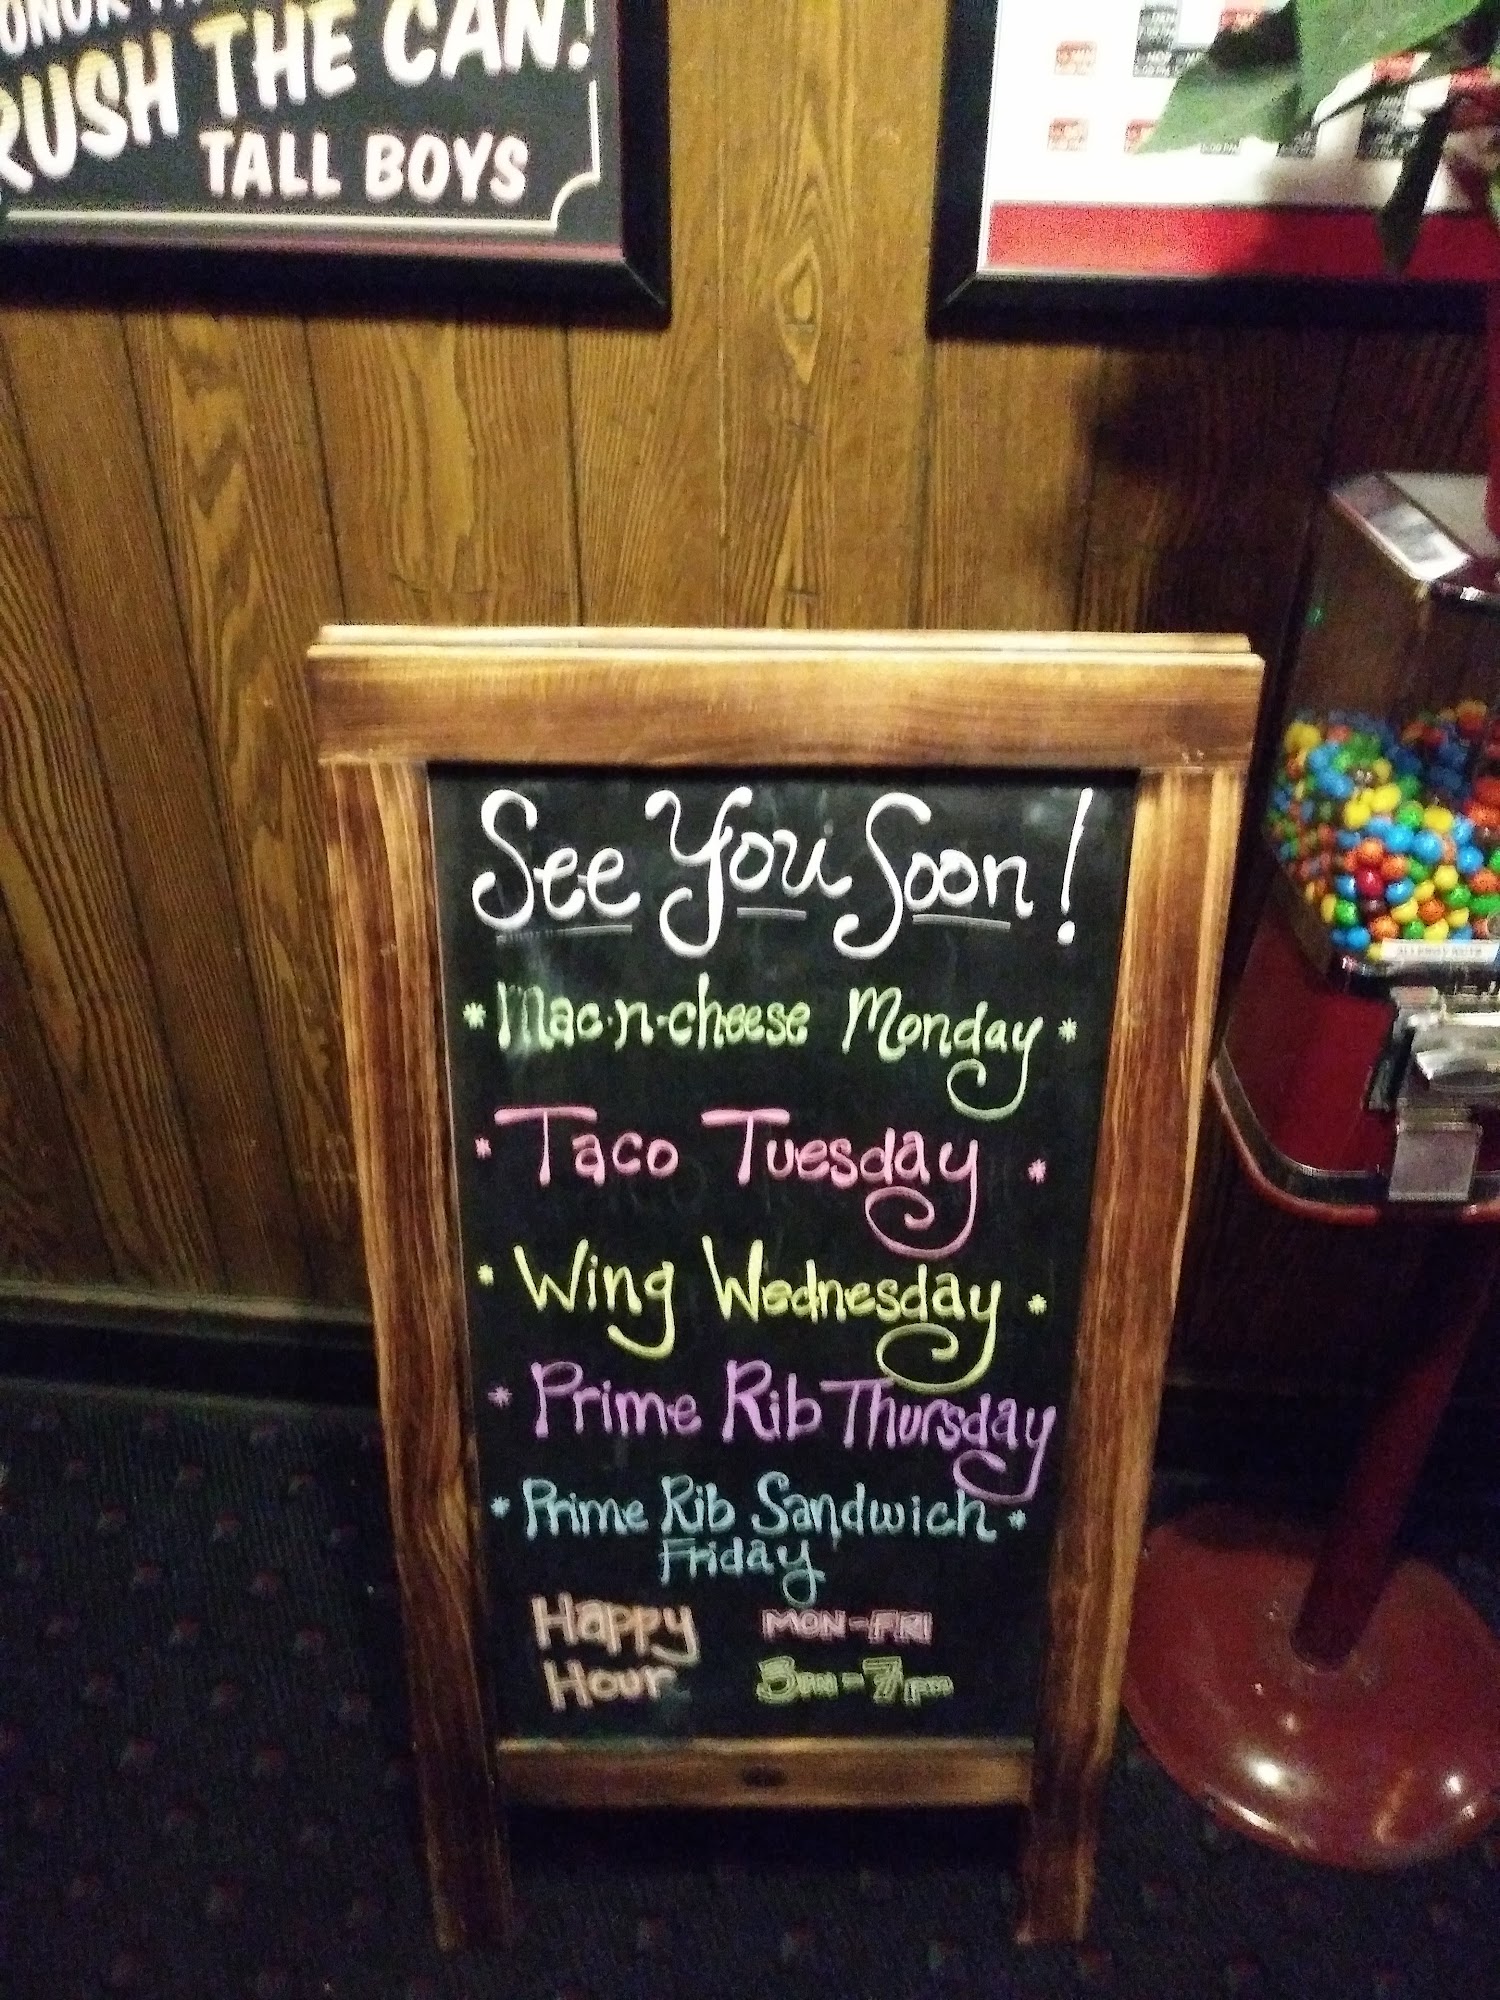 THE CAN!
TALL BOYS
See You Soon!
* Mac-n-cheese Monday *
* Taco Tuesday *
* Wing Wednesday *
* Prime Rib Thursday
* Prime Rib Sandwich *
Friday
Happy MON-FRI
Hour 3PM-7pm